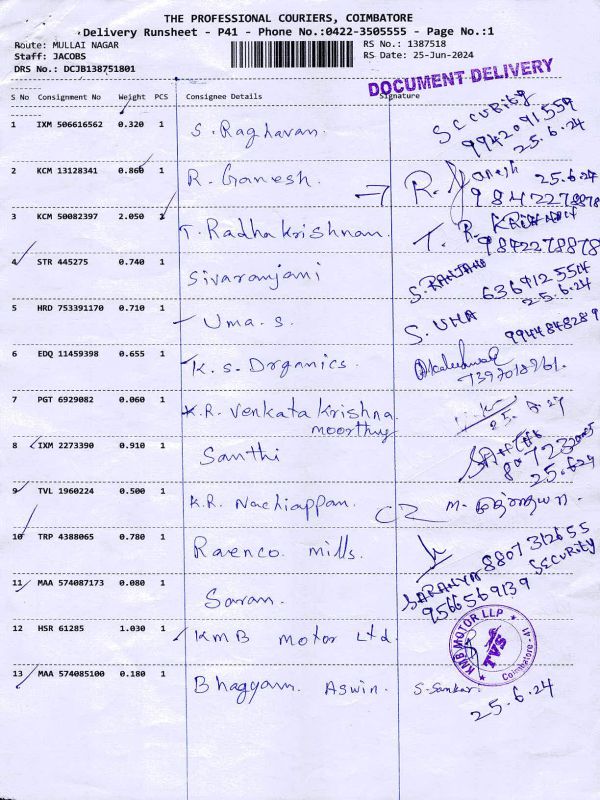 THE PROFESSIONAL COURIERS, COIMBATORE
Delivery Runsheet - P41 - Phone No.:0422-3505555 - Page No.:1
Route: MULLAI NAGAR RS No.: 1387518
Staff: JACOBS RS Date: 25-Jun-2024
DRS No.: DCJB138751801
DOCUMENT DELIVERY
S No Consignment No Weight PCS Consignee Details Signature
1 IXM 506616562 0.320 1 S. Raghavan. SECURity
9942091559
25.6.24
2 KCM 13128341 0.860 1 R. Ganesh. R. Ganesh 25.6.24
9842278878
3 KCM 50082397 2.050 T. Radhakrishnan. T. R.
9842278878
4 STR 445275 0.740 1 Sivaranjani S. RANJANI
6369125504
25.6.24
5 HRD 753391170 0.710 1 Uma. S. S. UMA
9944848289
6 EDQ 11459398 0.655 1 K. S. Organics.
7397018961.
7 PGT 6929082 0.060 1 K.R. Venkata Krishna
moorthy
8 IXM 2273390 0.910 1 Santhi SANTHI
25.6.24
9 TVL 1960224 0.500 1 K.R. Nachiappan. M.
10 TRP 4388065 0.780 1 Ravenco. mills. 8807312655
SECURity
11 MAA 574087173 0.080 1 Saran. SARANYA
9566569139
12 HSR 61285 1.030 1 KMB Motor Ltd.
KMB MOTOR LLP
TVS
Coimbatore - 41
13 MAA 574085100 0.180 1 Bhagyam. Aswin. S. Sankar.
25.6.24